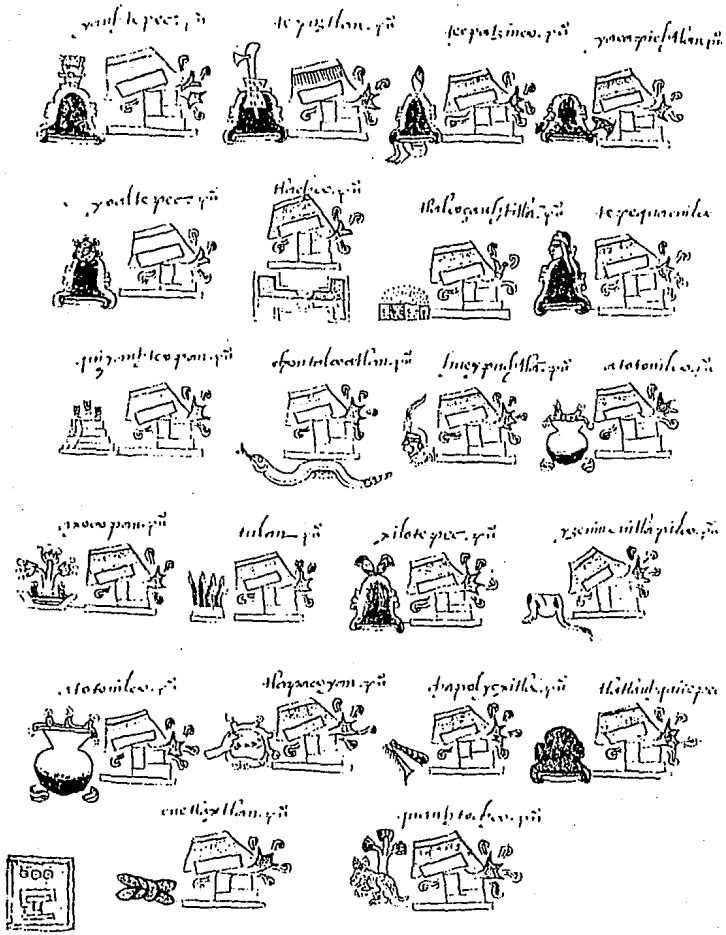 yauhtepec. pu°
tepuztlan. pu°
tepatzinco. pu°
yacapichtlan. pu°
yoaltepec. pu°
tlachco. pu°
tlalcoçauhtitlā. pu°
tepequacuilco
quiyauhteopan. pu°
chontalcoatlan. pu°
hueypuchtlā. pu°
atotonilco. pu°
axocopan. pu°
tulan. pu°
xilotepec. pu°
yzcuincuitlapilco. pu°
atotonilco. pu°
tlapacoyan. pu°
chapolycxitla. pu°
tlatlauhquitepec
cuetlaxtlan. pu°
quauhtochco. pu°